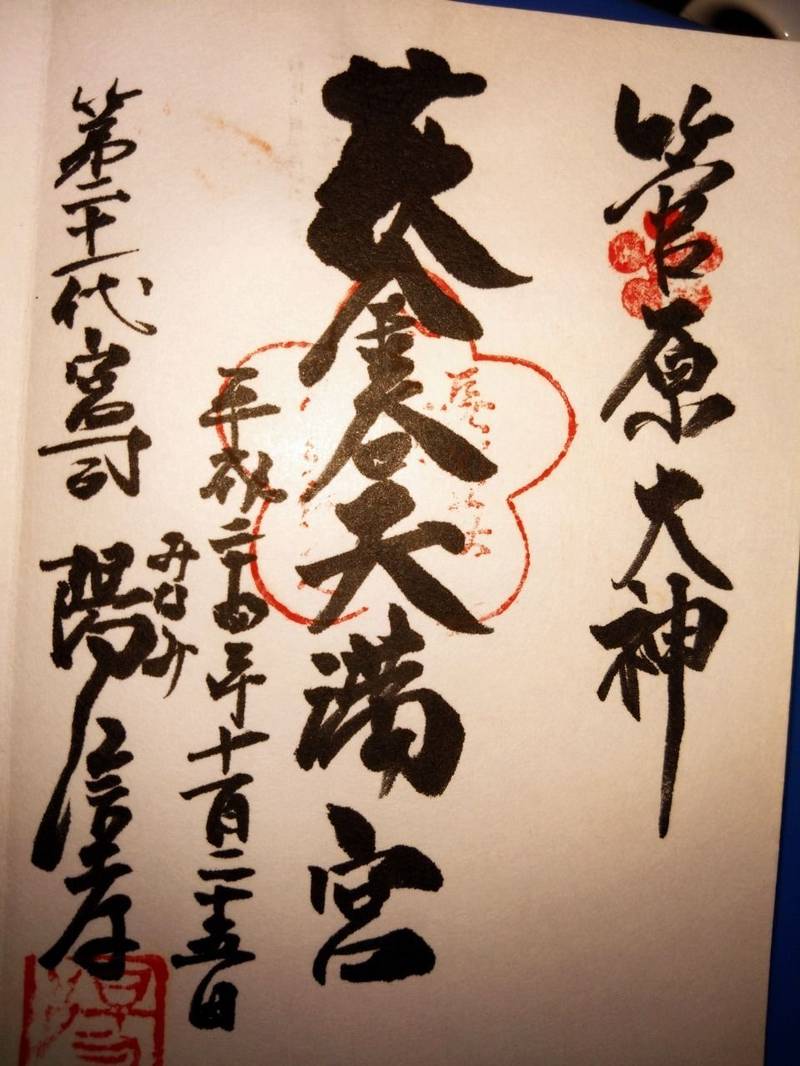 菅原大神
萩金谷天満宮
平成二十四年十一月二十五日
第二十一代宮司
みなみ
陽信孝